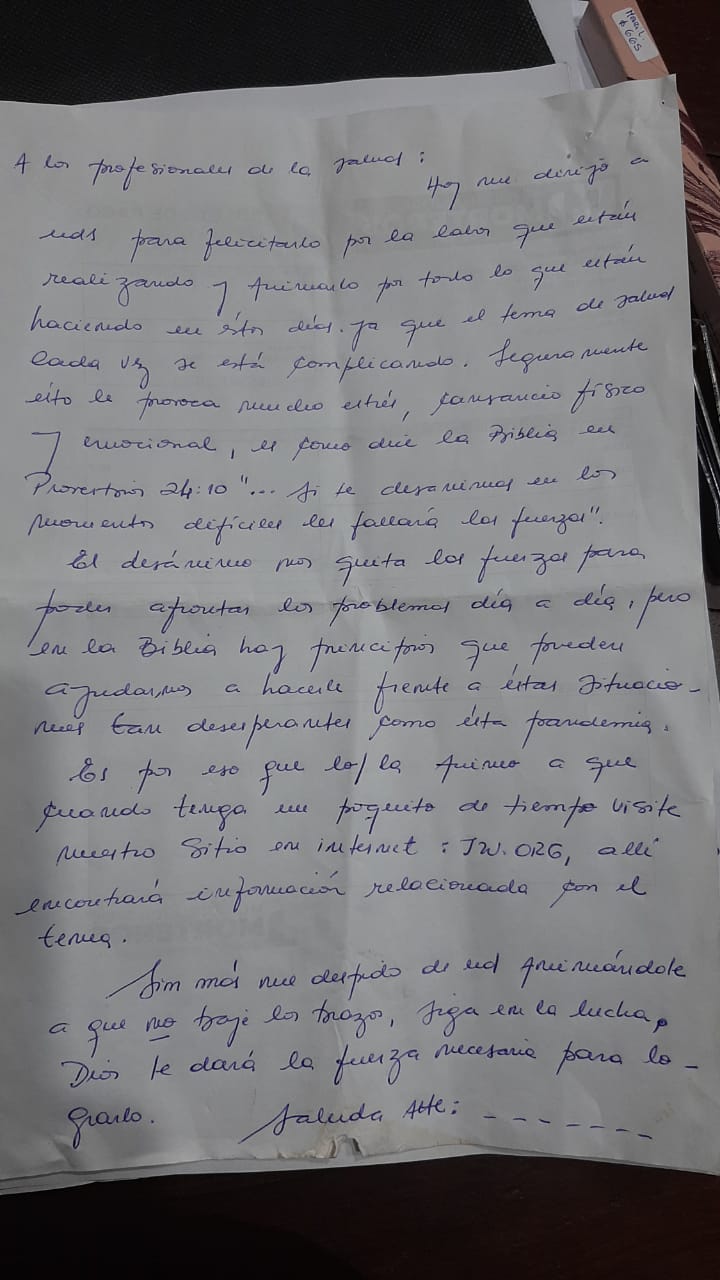 Mari L.
$665
A los profesionales de la salud:
Hoy me dirijo a
uds para felicitarlo por la labor que están
realizando y animarlo por todo lo que están
haciendo en éstos días. ya que el tema de salud
cada vez se está complicando. Seguramente
ésto le provoca mucho estrés, cansancio físico
y emocional, es como dice la Biblia en
Proverbios 24:10 "... Si te desanimas en los
momentos difíciles les fallará las fuerzas".
El desánimo nos quita las fuerzas para
poder afrontar los problemas día a día, pero
en la Biblia hay principios que pueden
ayudarnos a hacerle frente a éstas situacio-
nes tan desesperantes como ésta pandemia.
Es por eso que lo/la animo a que
cuando tenga un poquito de tiempo visite
nuestro Sitio en internet: JW.ORG, allí
encontrará información relacionada con el
tema.
Sin más me despido de ud animándole
a que no baje los brazos, siga en la lucha,
Dios le dará la fuerza necesaria para lo-
grarlo. Saluda Atte: - - - - - - -